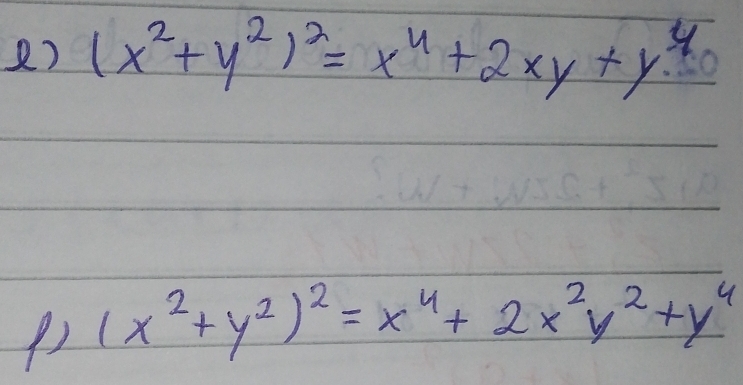 e) (x² + y²)² = x⁴ + 2xy + y.⁴
f) (x² + y²)² = x⁴ + 2x²y² + y⁴